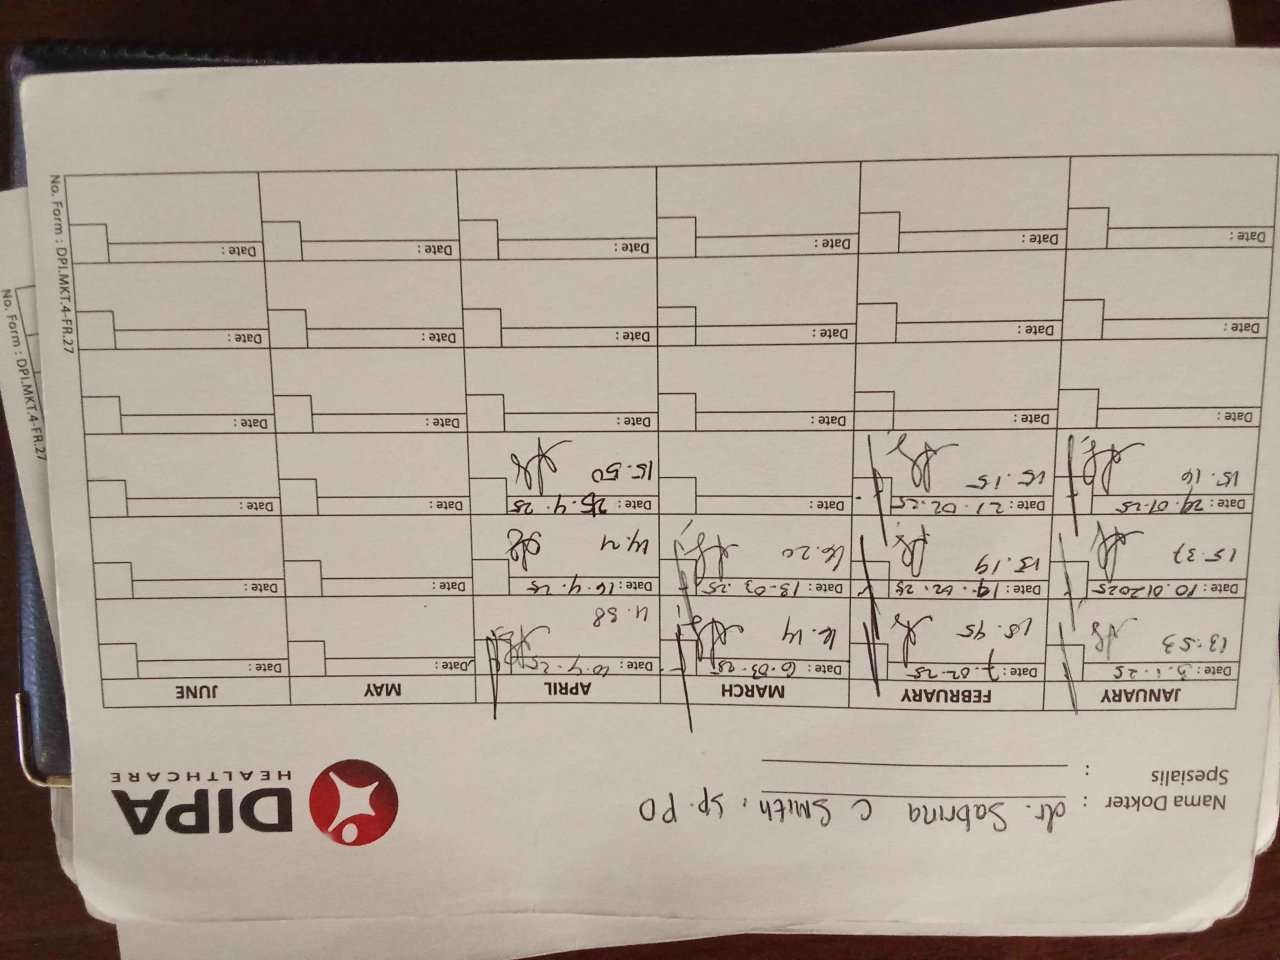 Nama Dokter : dr. Sabrina C Smith, Sp. PD
Spesialis :
DIPA
HEALTHCARE
JANUARY FEBRUARY MARCH APRIL MAY JUNE
Date: 3.1.25 Date: 7.02.25 Date: 6.03.25 Date: 10.4.25 Date: Date:
13.53 15.45 16.14 14.38
Date: 10.01.2025 Date: 14.02.25 Date: 13-03.25 Date: 16.4.25 Date: Date:
15.37 15.19 16.20 14.21
Date: 24.01.25 Date: 21.02.25 Date: Date: 25.4.25 Date: Date:
15.16 15.15 15.50
Date: Date: Date: Date: Date: Date:
Date: Date: Date: Date: Date: Date:
Date: Date: Date: Date: Date: Date:
No. Form : DPI.MKT.4-FR.27
No. Form : DPI.MKT.4-FR.27